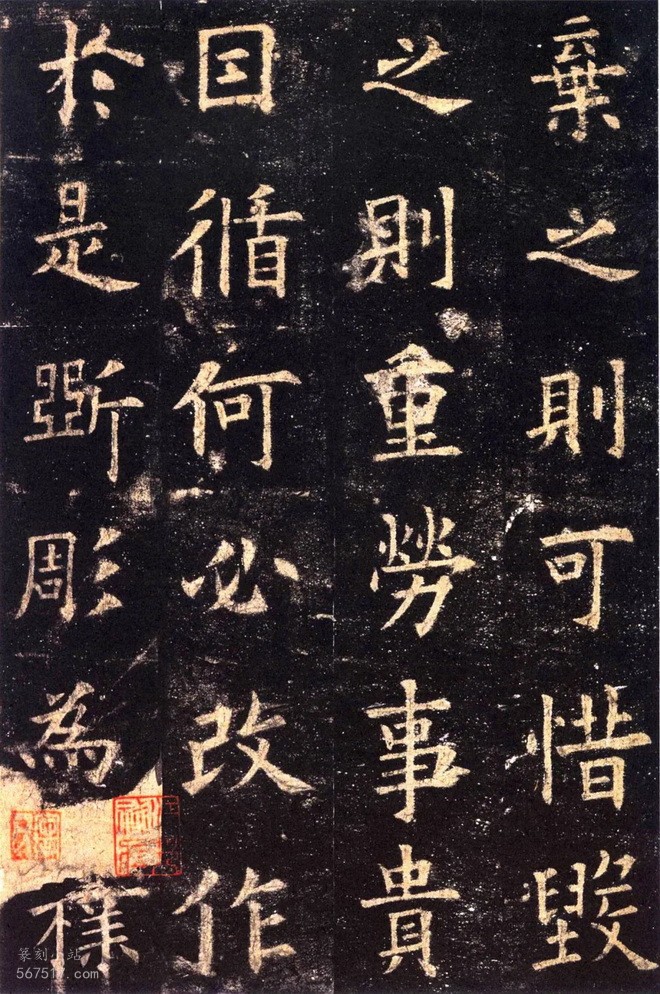 棄之則可惜毀
之則重勞事貴
因循何必改作
於是斲彫為樸
篆刻小站
567517.com